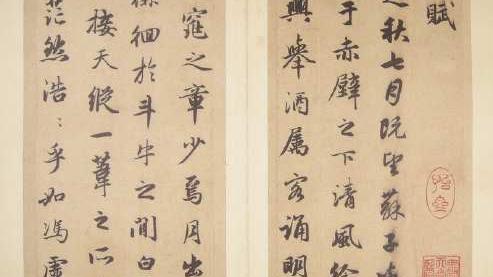 賦
之秋七月既望蘇子
于赤壁之下清風徐
興舉酒属客誦明
窕之章少焉月出
徘徊於斗牛之間白
接天縱一葦之所
茫然浩〻乎如馮虛